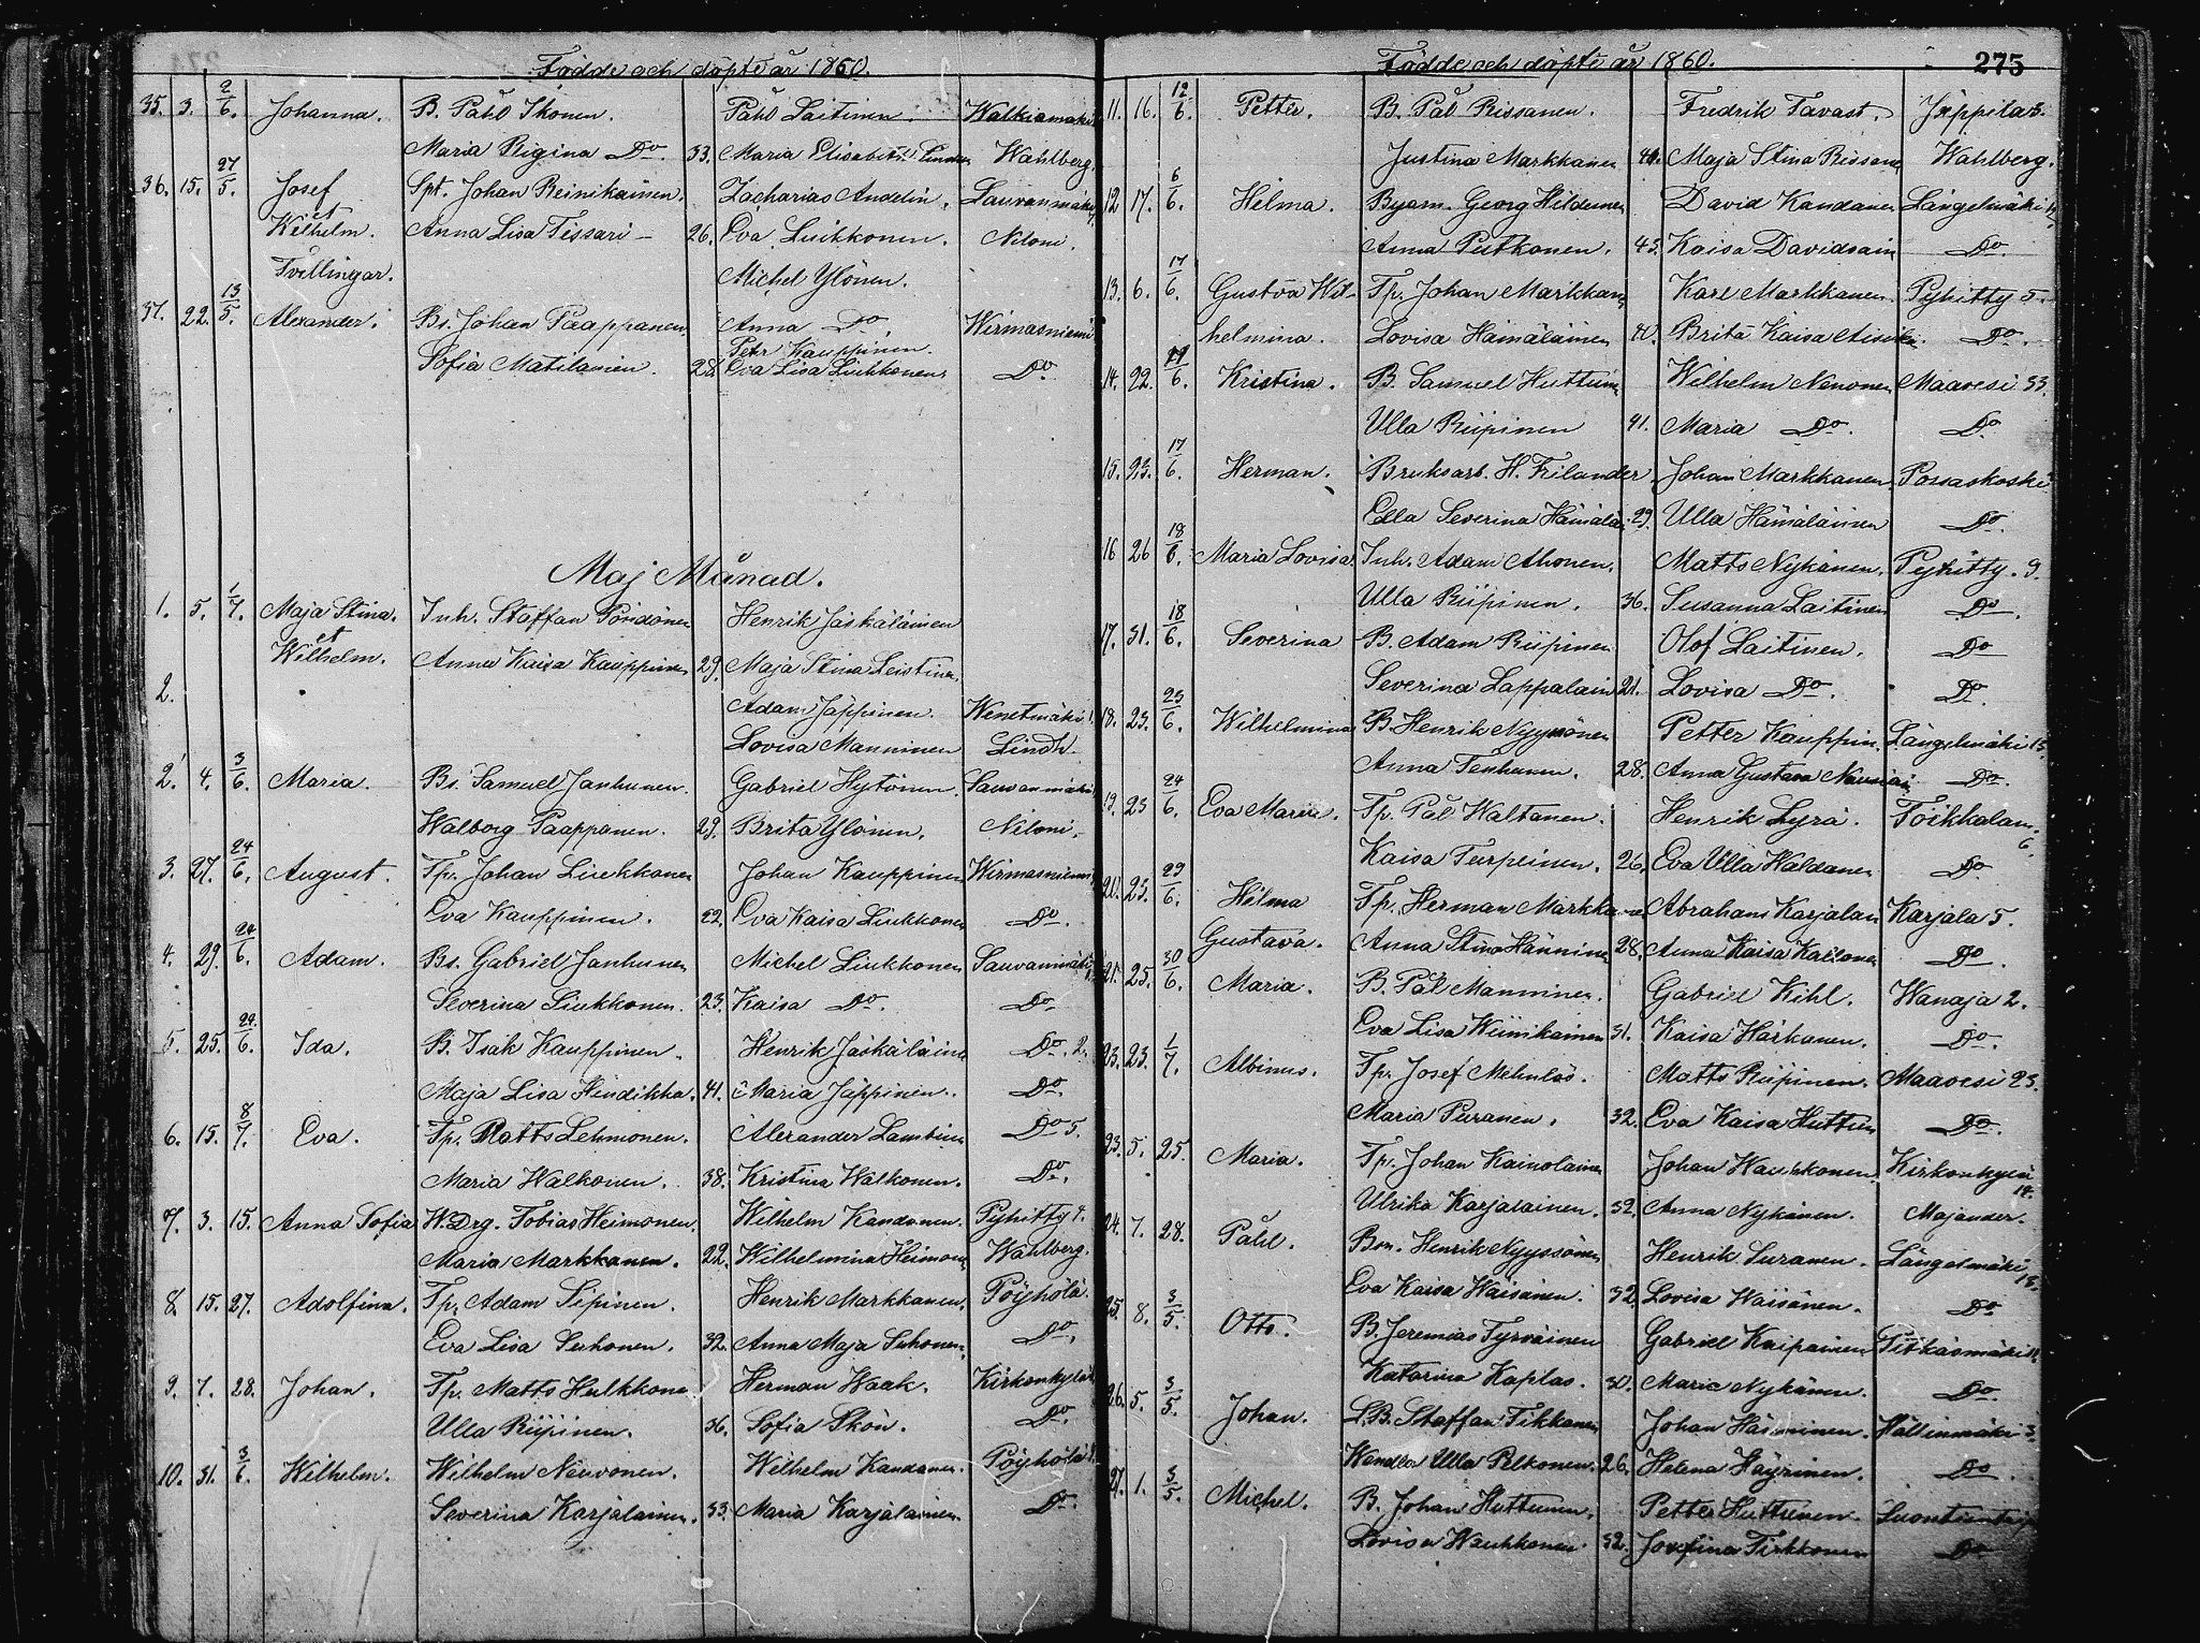 Födde och döpte år 1860.
35. 3. 2/6. Johanna. B. Påhl Ikonen. Påhl Laitinen. Walkiamäki
Maria Regina Do. 33. Maria Elisabeth Wahlberg.
36. 15. 27/5. Josef Spt. Johan Reinikainen. Zacharias Andelin. Sauvanmäki
et Wilhelm. Anna Lisa Tissari 26. Eva Liukkonen. Niloni.
Tvillingar. Michel Ylönen.
37. 22. 13/5. Alexander. Bs. Johan Paappanen. Anna Do. Wirmasniemi
Petr Kauppinen.
Sofia Matilainen. 28. Eva Lisa Liukkonen. Do
Maj Månad.
1. 5. 1/7. Maja Stina. Inh. Staffan Pöndönen Henrik Jäskäläinen
et Wilhelm. Anna Kaisa Kauppinen 29. Maja Stina Leistinen
2. Adam Jäppinen. Wenetmäki 1.
Lovisa Manninen Lindh.
2. 4. 3/6. Maria. Bs. Samuel Janhunen. Gabriel Hytönen. Sauvanmäki
Walborg Paappanen. 29. Brita Ylönen. Niloni.
3. 27. 24/6. August. Tp. Johan Liukkonen Johan Kauppinen Wirmasniemi
Eva Kauppinen. 22. Eva Kaisa Liukkonen Do.
4. 29. 24/6. Adam. Bs. Gabriel Janhunen Michel Liukkonen Sauvanmäki
Severina Liukkonen. 23. Kaisa Do. Do.
5. 25. 24/6. Ida. B. Isak Kauppinen. Henrik Jäskäläinen Do. 2.
Maja Lisa Hindikka. 41. Maria Jäppinen. Do.
6. 15. 8/7. Eva. Tp. Matts Lehmonen. Alexander Lambin Do 5.
Maria Walkonen. 38. Kristina Walkonen. Do.
7. 3. 15. Anna Sofia W.Drg. Tobias Heimonen. Wilhelm Kandanen. Pyhitty 4.
Maria Markkanen. 22. Wilhelmina Heimonen Wahlberg.
8. 15. 27. Adolfina. Tp. Adam Sipinen. Henrik Markkanen. Pöyhölä.
Eva Lisa Suhonen. 32. Anna Maja Suhonen. Do.
9. 7. 28. Johan. Tp. Matts Hulkkone Herman Waak. Kirkonkylä
Ulla Riipinen. 36. Sofia Skön. Do.
10. 31. 3/6. Wilhelm. Wilhelm Neuvonen. Wilhelm Kandanen. Pöyhölä
Severina Karjalainen. 33. Maria Karjalainen. Do.
Födde och döpte år 1860. 275
11. 16. 12/6. Petter. B. Pål Rissanen. Fredrik Tavast. Jäppilä 3.
Justina Markkanen 44. Maja Stina Rissanen Wahlberg.
12 17. 6/6. Helma. Byam. Georg Hildenen David Kandanen Längelmäki
Anna Putkonen. 45. Kaisa Davidsain Do.
13. 6. 17/6. Gustova Wil- Tp. Johan Markkanen Karl Markkanen. Pyhitty 5.
helmina. Lovisa Hämäläinen 40. Brita Kaisa Do.
14. 22. 6. Kristina. B. Samuel Huttunen Wilhelm Nenonen Maavesi 33.
Ulla Riipinen 41. Maria Do. Do
15. 23. 17/6. Herman. Bruksarb. H. Frilander Johan Markkanen. Possaskoski
Ella Severina Hämäläi 29. Ulla Hämäläinen Do.
16 26 18/6. Maria Lovisa. Inh. Adam Ahonen. Matts Nykänen. Pyhitty. 9.
Ulla Riipinen. 36. Susanna Laitinen Do.
17. 31. 18/6. Severina B. Adam Riipinen Olof Laitinen. Do
Severina Lappalain 21. Lovisa Do. Do.
18. 23. 23/6. Wilhelmina B. Henrik Nyyssönen Petter Kauppin. Längelmäki 13.
Anna Tenhunen. 28. Anna Gustava Do.
19. 23 24/6. Eva Maria. Tp. Pål Waltanen. Henrik Lyra. Toikkalam. 6.
Kaisa Turpeinen. 26. Eva Ulla Waldanen Do
20. 25. 29/6. Hilma Tp. Herman Markkanen Abraham Karjalain Karjala 5.
Gustava. Anna Stina Hänninen 28. Anna Kaisa Do.
21. 25. 30/6. Maria. B. Pål Manninen. Gabriel Kihl. Wanaja 2.
Eva Lisa Wiinikainen 31. Kaisa Härkänen. Do.
23. 23. 1/7. Albinus. Tp. Josef Mehnlös. Matts Riipinen. Maavesi 23.
Maria Puranen. 32. Eva Kaisa Huttun Do.
23. 5. 25. Maria. Tp. Johan Kainolainen Johan Wauhkonen Kirkonkylä 14.
Ulrika Karjalainen. 32. Anna Nykänen. Majander.
24. 7. 28. Påhl. Bon. Henrik Nyyssönen Henrik Suranen. Längelmäki 13.
Eva Kaisa Wäisänen. 32. Lovisa Wäisänen. Do
25. 8. 3/5. Otto. B. Jeremias Tyrväinen Gabriel Kaipainen Titkäsmäki
Katarina Kaplas. 30. Maria Nykänen. Do.
26. 5. 3/5. Johan. S.B. Staffan Tikkanen Johan Häyrinen. Hällinmäki 3.
Wendla Ulla Pelkonen. 26. Helena Häyrinen. Do.
27. 1. 3/5. Michel. B. Johan Huttunen. Petter Huttunen.
Lovisa Wauhkonen. 32. Josefina Tirkkonen Do